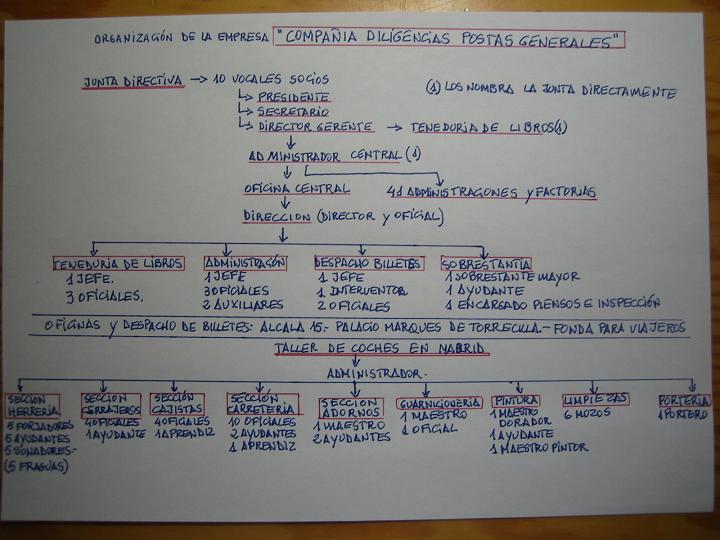 ORGANIZACIÓN DE LA EMPRESA "COMPAÑIA DILIGENCIAS POSTAS GENERALES"
JUNTA DIRECTIVA → 10 VOCALES SOCIOS
(1) LOS NOMBRA LA JUNTA DIRECTAMENTE
PRESIDENTE
SECRETARIO
DIRECTOR GERENTE → TENEDURIA DE LIBROS (1)
ADMINISTRADOR CENTRAL (1)
OFICINA CENTRAL
41 ADMINISTRACIONES Y FACTORIAS
DIRECCION (DIRECTOR Y OFICIAL)
TENEDURIA DE LIBROS
1 JEFE.
3 OFICIALES.
ADMINISTRACIÓN
1 JEFE
3 OFICIALES
2 AUXILIARES
DESPACHO BILLETES
1 JEFE
1 INTERVENTOR
2 OFICIALES
SOBRESTANTIA
1 SOBRESTANTE MAYOR
1 AYUDANTE
1 ENCARGADO PIENSOS E INSPECCIÓN
OFICINAS Y DESPACHO DE BILLETES: ALCALA 15.- PALACIO MARQUES DE TORRECILLA.- FONDA PARA VIAJEROS
TALLER DE COCHES EN MADRID
ADMINISTRADOR.
SECCION
HERRERIA
5 FORJADORES
5 AYUDANTES
5 SONADORES.-
(5 FRAGUAS)
SECCION
CERRAJEROS
4 OFICIALES
1 AYUDANTE
SECCIÓN
CAJISTAS
4 OFICIALES
1 APRENDIZ
SECCION
CARRETERIA
10 OFICIALES
2 AYUDANTES
1 APRENDIZ
SECCION
ADORNOS
1 MAESTRO
2 AYUDANTES
GUARNICIONERIA
1 MAESTRO
1 OFICIAL
PINTURA
1 MAESTRO
DORADOR
1 AYUDANTE
1 MAESTRO PINTOR
LIMPIEZAS
6 MOZOS
PORTERIA
1 PORTERO